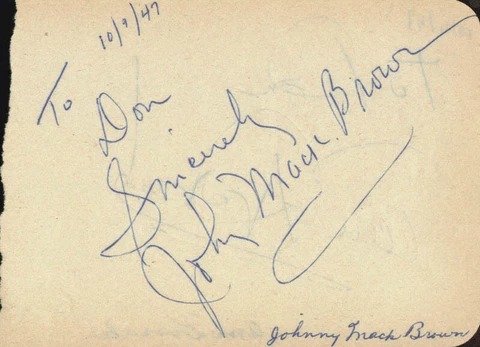 10/9/47
To Don
Sincerely
John Mack Brown
Johnny Mack Brown